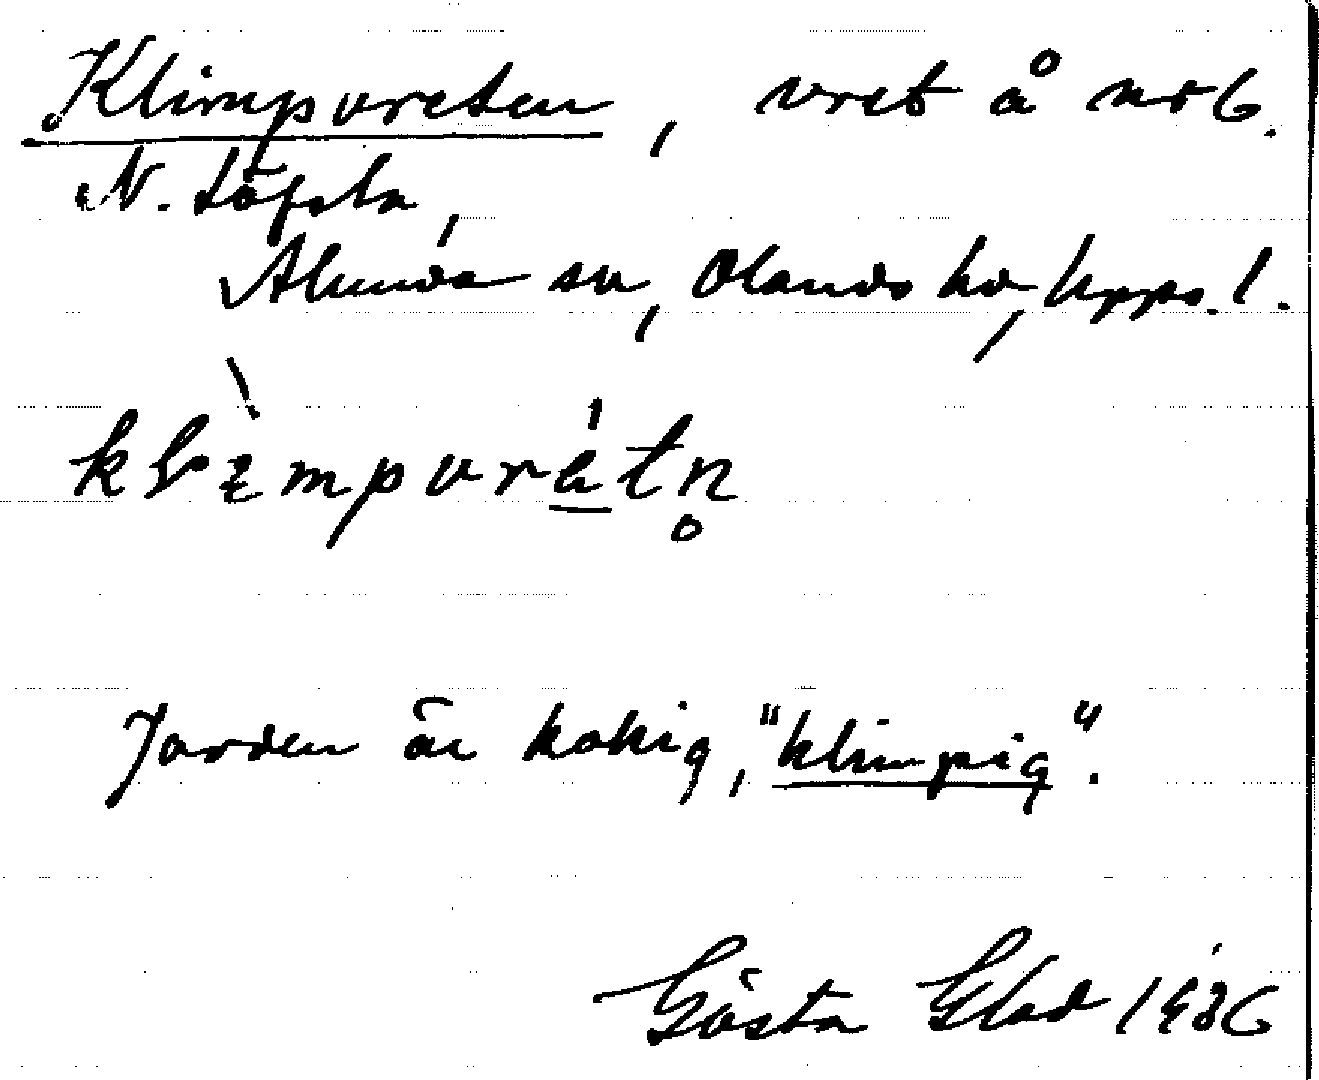 Klimpvreten, vret å nr 6.
N. Löfsta,
Alunda sn, Olands hd, Upps. l.
klìmpvrétn̥
Jorden är kokig, "klimpig".
Gösta Glad 1936